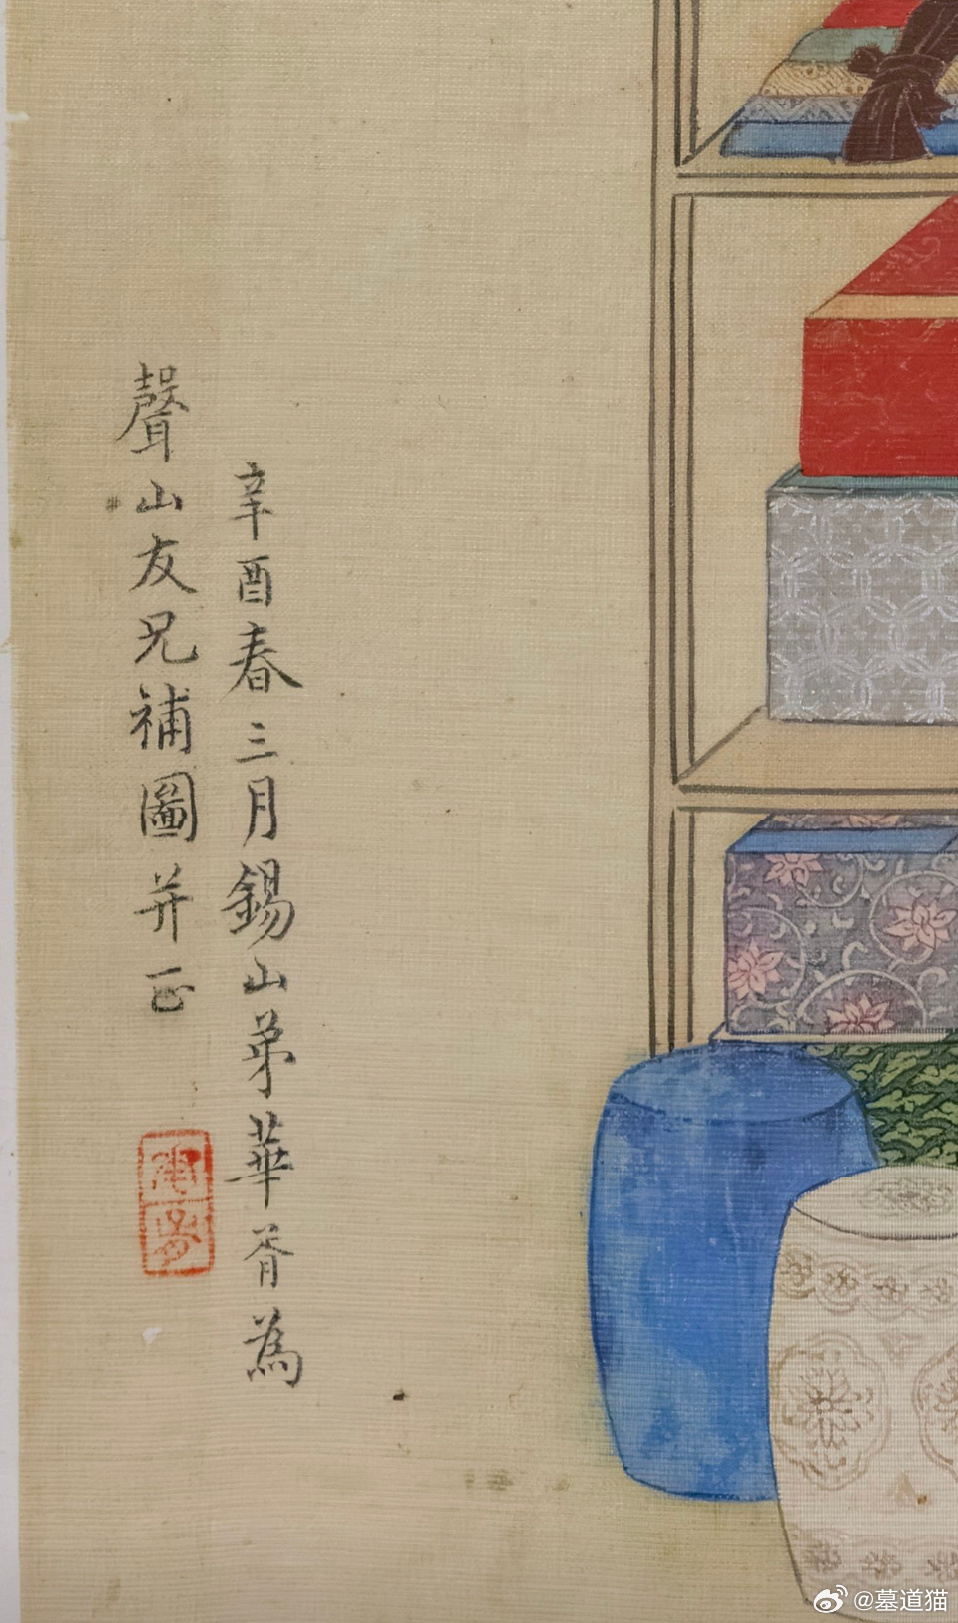 辛酉春三月錫山弟華胥為
聲山友兄補圖并正
華胥
@墓道猫